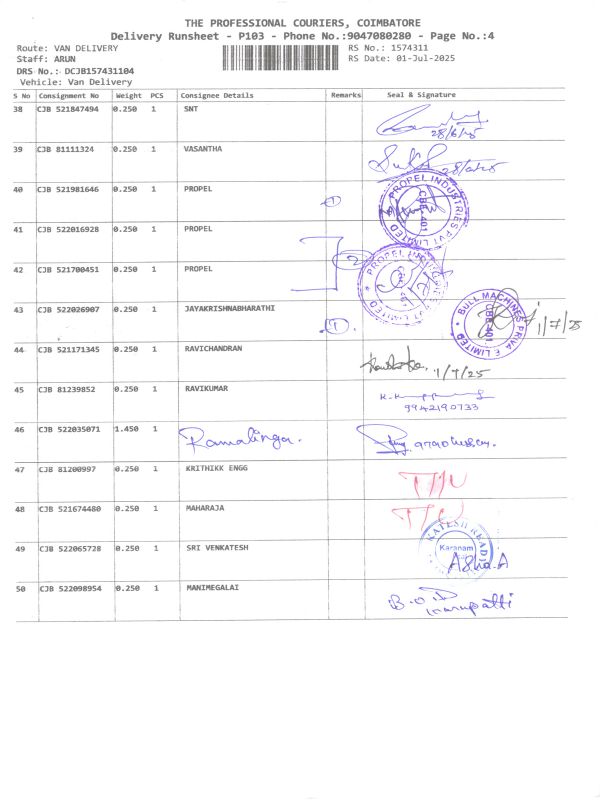 THE PROFESSIONAL COURIERS, COIMBATORE
Delivery Runsheet - P103 - Phone No.:9047080280 - Page No.:4
Route: VAN DELIVERY RS No.: 1574311
Staff: ARUN RS Date: 01-Jul-2025
DRS No.: DCJB157431104
Vehicle: Van Delivery
S No Consignment No Weight PCS Consignee Details Remarks Seal & Signature
38 CJB 521847494 0.250 1 SNT
28/6/25
39 CJB 81111324 0.250 1 VASANTHA
40 CJB 521981646 0.250 1 PROPEL 1 PROPEL INDUSTRIES PVT LIMITED CBE-401
41 CJB 522016928 0.250 1 PROPEL
2
42 CJB 521700451 0.250 1 PROPEL
43 CJB 522026907 0.250 1 JAYAKRISHNABHARATHI BULL MACHINES PRIVATE LIMITED CBE-401 1/7/25
44 CJB 521171345 0.250 1 RAVICHANDRAN 1/7/25
45 CJB 81239852 0.250 1 RAVIKUMAR
9942190733
46 CJB 522035071 1.450 1 Ramalinga.
47 CJB 81200997 0.250 1 KRITHIKK ENGG
48 CJB 521674480 0.250 1 MAHARAJA
49 CJB 522065728 0.250 1 SRI VENKATESH Karanam Asha.A
50 CJB 522098954 0.250 1 MANIMEGALAI